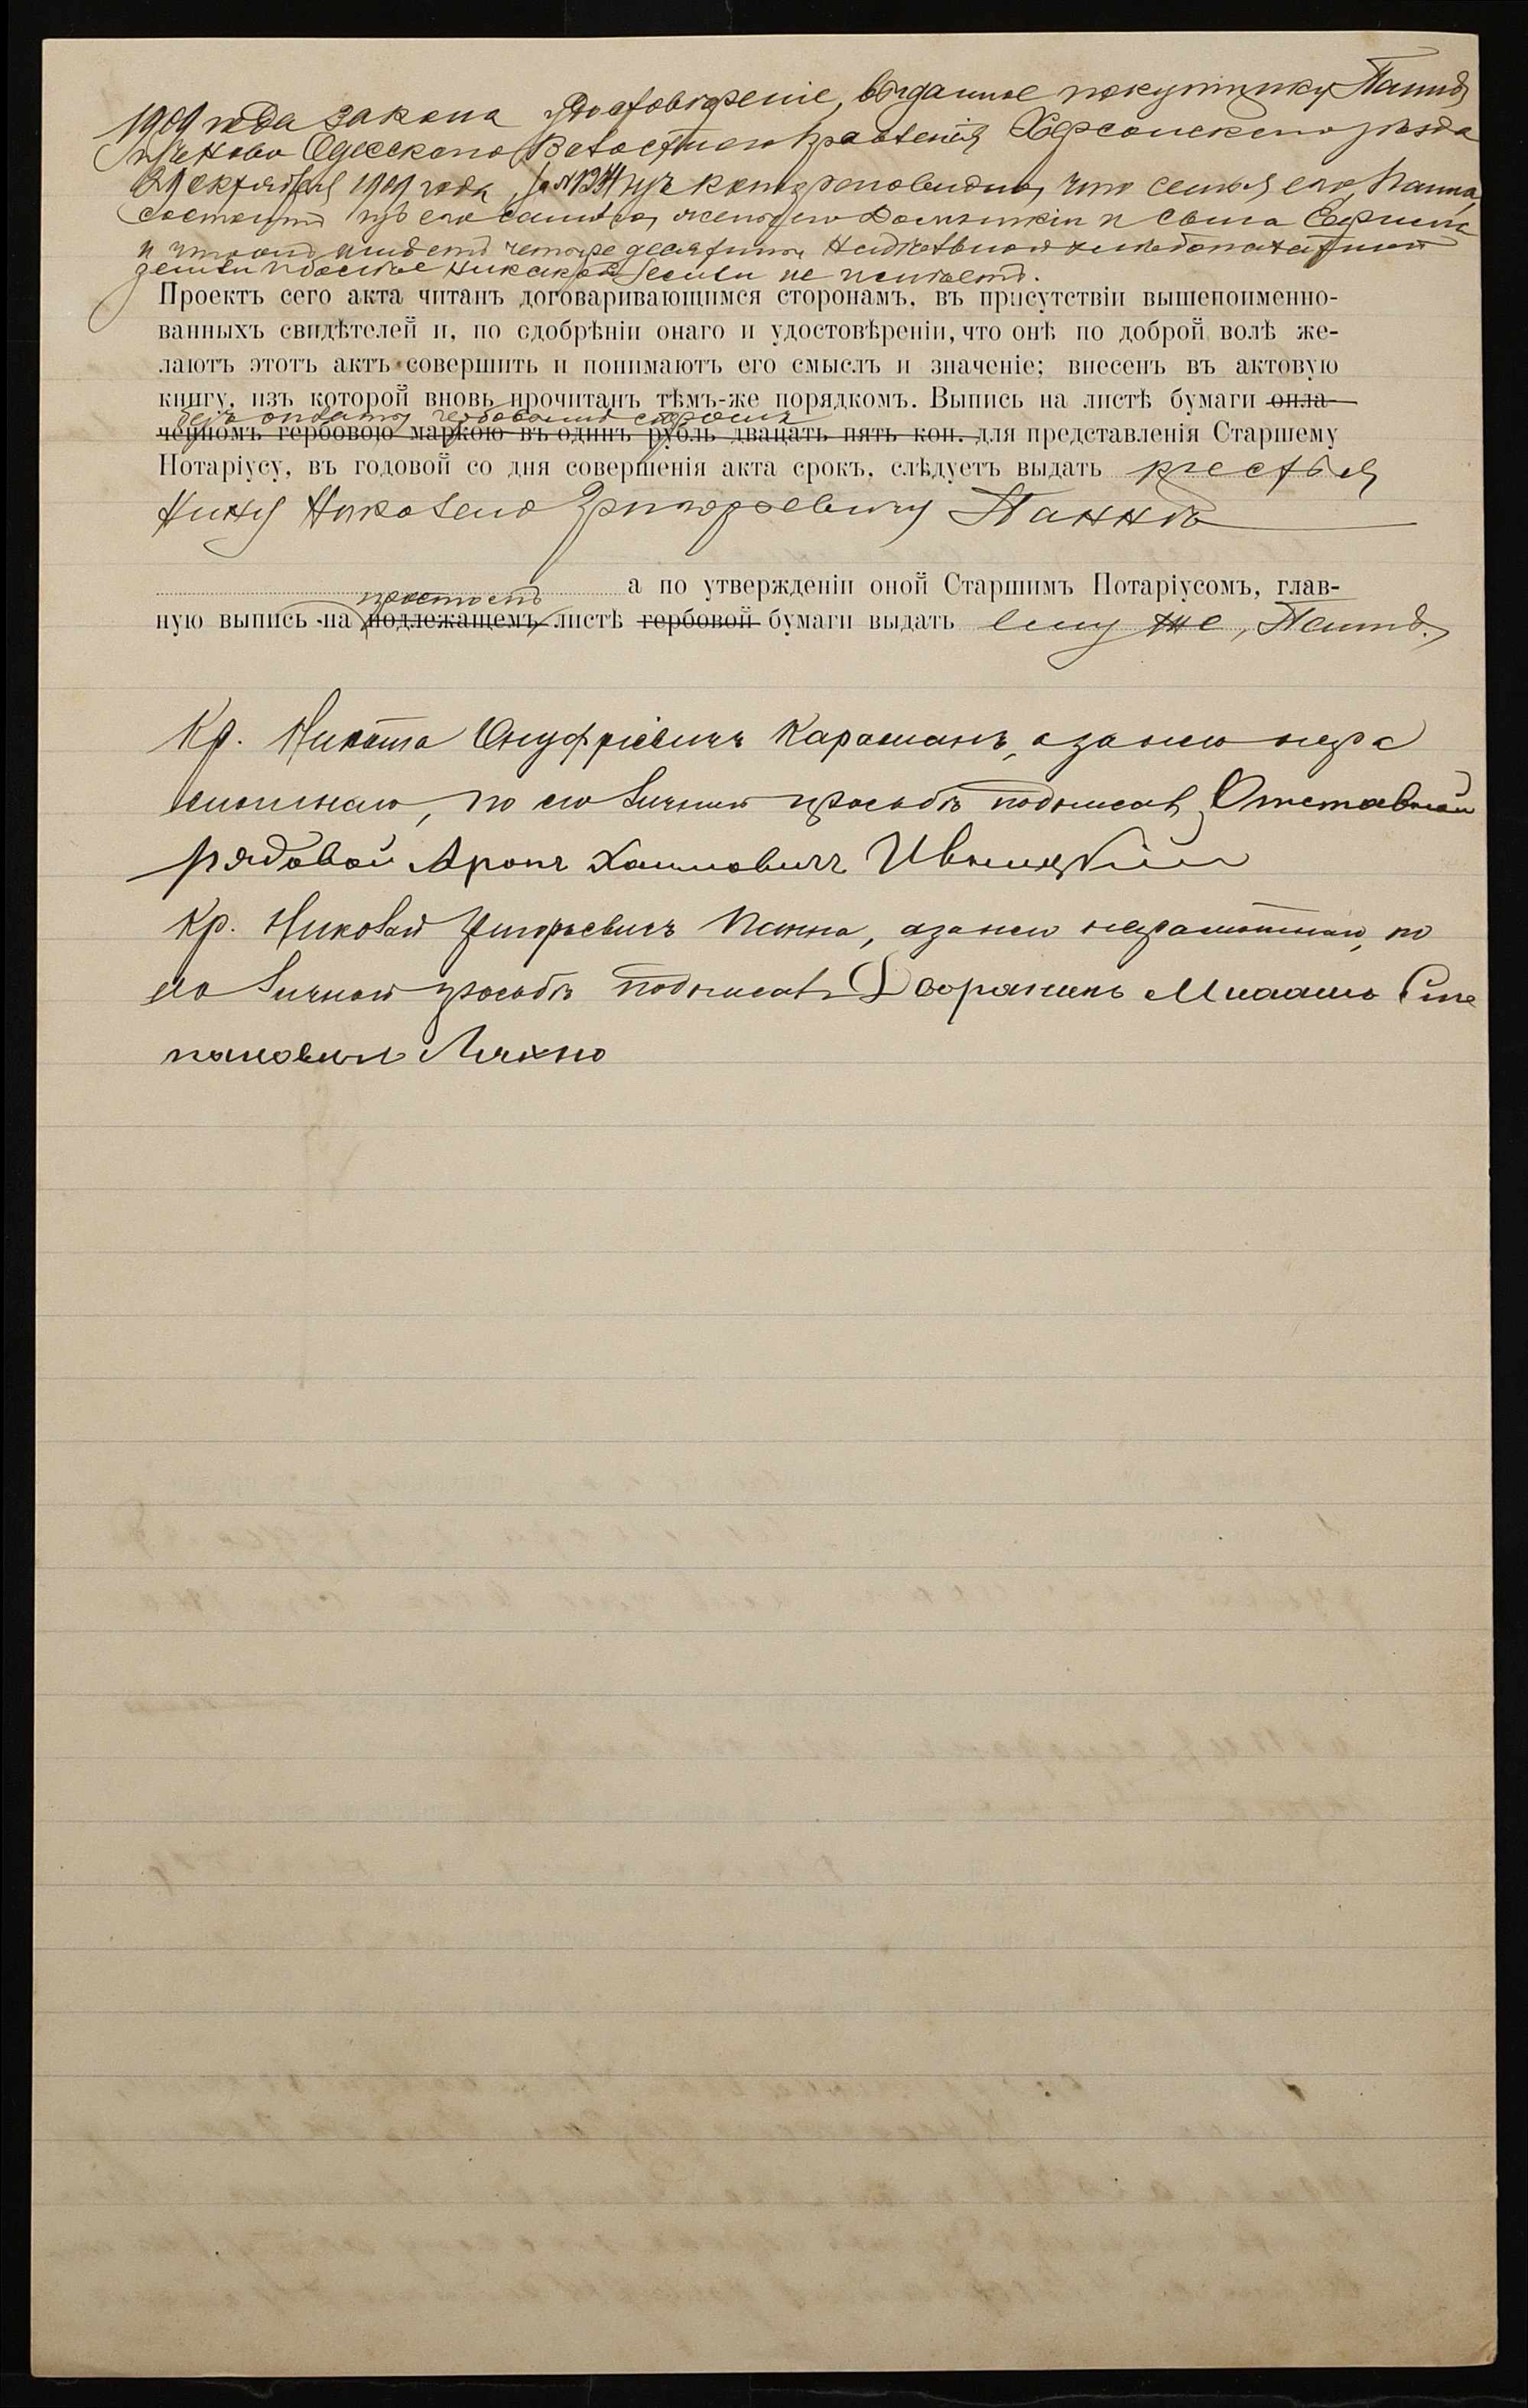 1909 года закона удостовѣреніе, выданное покупщику Паннѣ
Ново Одесскаго Волостного Правленія Херсонскаго уѣзда
29 октября 1909 года за № изъ котораго видно, что семья его, Панна,
состоитъ изъ его самого, жены его и сына
и что онъ имѣетъ четыре десятины надѣльной
земли и болѣе никакой земли не имѣетъ.
Проектъ сего акта читанъ договаривающимся сторонамъ, въ присутствіи вышепоименно-
ванныхъ свидѣтелей и, по одобрѣніи онаго и удостовѣреніи, что онѣ по доброй волѣ же-
лаютъ этотъ актъ совершить и понимаютъ его смыслъ и значеніе; внесенъ въ актовую
книгу, изъ которой вновь прочитанъ тѣмъ-же порядкомъ. Выпись на листѣ бумаги опла-
безъ оплаты гербовымъ сборомъ
ченномъ гербовою маркою въ одинъ рубль двацать пять коп. для представленія Старшему
Нотаріусу, въ годовой со дня совершенія акта срокъ, слѣдуетъ выдать крестья
нину Николаю Григорьевичу Паннѣ
а по утвержденіи оной Старшимъ Нотаріусомъ, глав-
простомъ
ную выпись на подлежащемъ листѣ гербовой бумаги выдать ему же, Паннѣ.
Кр. Никита Онуфріевичъ Караманъ, а за него негра
мотнаго, по его личной просьбѣ подписалъ Отставной
рядовой Аронъ Хаимовичъ
Кр. Николай Григорьевичъ Панна, а за него неграмотнаго, по
его личной просьбѣ подписалъ Дворянинъ Сте
пановичъ Лихно